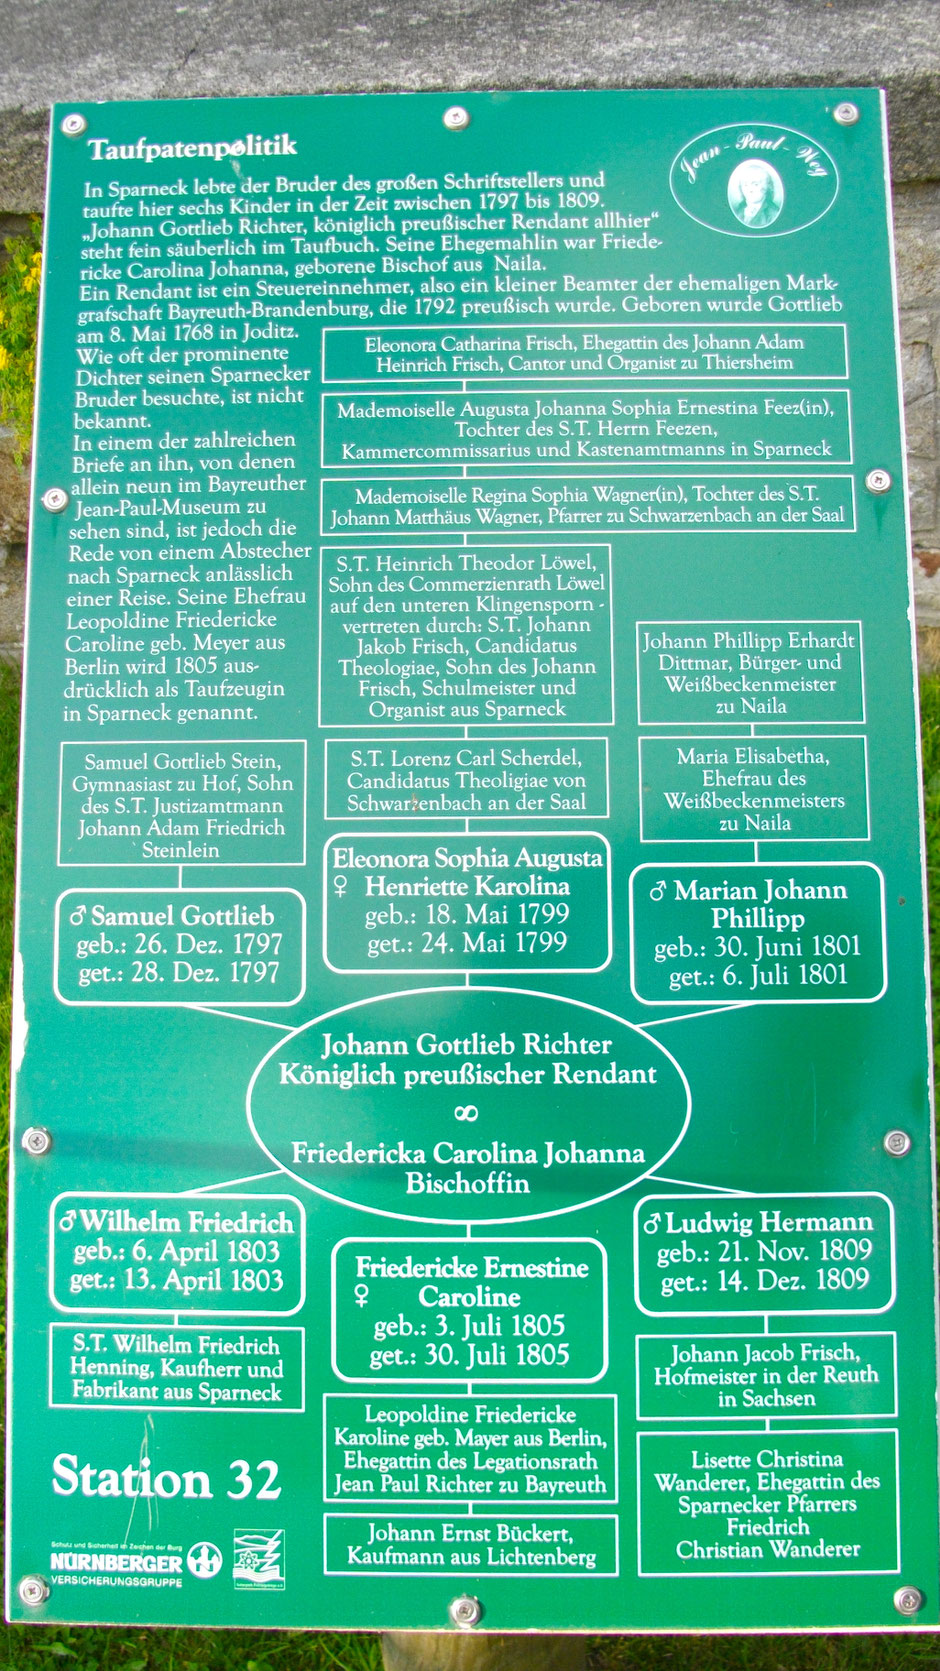 Taufpatenpolitik
Jean-Paul-Weg
In Sparneck lebte der Bruder des großen Schriftstellers und
taufte hier sechs Kinder in der Zeit zwischen 1797 bis 1809.
„Johann Gottlieb Richter, königlich preußischer Rendant allhier“
steht fein säuberlich im Taufbuch. Seine Ehegemahlin war Friede-
ricke Carolina Johanna, geborene Bischof aus Naila.
Ein Rendant ist ein Steuereinnehmer, also ein kleiner Beamter der ehemaligen Mark-
grafschaft Bayreuth-Brandenburg, die 1792 preußisch wurde. Geboren wurde Gottlieb
am 8. Mai 1768 in Joditz.
Wie oft der prominente
Dichter seinen Sparnecker
Bruder besuchte, ist nicht
bekannt.
In einem der zahlreichen
Briefe an ihn, von denen
allein neun im Bayreuther
Jean-Paul-Museum zu
sehen sind, ist jedoch die
Rede von einem Abstecher
nach Sparneck anlässlich
einer Reise. Seine Ehefrau
Leopoldine Friedericke
Caroline geb. Meyer aus
Berlin wird 1805 aus-
drücklich als Taufzeugin
in Sparneck genannt.
Eleonora Catharina Frisch, Ehegattin des Johann Adam
Heinrich Frisch, Cantor und Organist zu Thiersheim
Mademoiselle Augusta Johanna Sophia Ernestina Feez(in),
Tochter des S.T. Herrn Feezen,
Kammercommissarius und Kastenamtmanns in Sparneck
Mademoiselle Regina Sophia Wagner(in), Tochter des S.T.
Johann Matthäus Wagner, Pfarrer zu Schwarzenbach an der Saal
S.T. Heinrich Theodor Löwel,
Sohn des Commerzienrath Löwel
auf den unteren Klingensporn -
vertreten durch: S.T. Johann
Jakob Frisch, Candidatus
Theologiae, Sohn des Johann
Frisch, Schulmeister und
Organist aus Sparneck
Johann Phillipp Erhardt
Dittmar, Bürger- und
Weißbeckenmeister
zu Naila
Samuel Gottlieb Stein,
Gymnasiast zu Hof, Sohn
des S.T. Justizamtmann
Johann Adam Friedrich
Steinlein
S.T. Lorenz Carl Scherdel,
Candidatus Theoligiae von
Schwarzenbach an der Saal
Maria Elisabetha,
Ehefrau des
Weißbeckenmeisters
zu Naila
♂ Samuel Gottlieb
geb.: 26. Dez. 1797
get.: 28. Dez. 1797
Eleonora Sophia Augusta
♀ Henriette Karolina
geb.: 18. Mai 1799
get.: 24. Mai 1799
♂ Marian Johann
Phillipp
geb.: 30. Juni 1801
get.: 6. Juli 1801
Johann Gottlieb Richter
Königlich preußischer Rendant
∞
Friedericka Carolina Johanna
Bischoffin
♂ Wilhelm Friedrich
geb.: 6. April 1803
get.: 13. April 1803
Friedericke Ernestine
♀ Caroline
geb.: 3. Juli 1805
get.: 30. Juli 1805
♂ Ludwig Hermann
geb.: 21. Nov. 1809
get.: 14. Dez. 1809
S.T. Wilhelm Friedrich
Henning, Kaufherr und
Fabrikant aus Sparneck
Leopoldine Friedericke
Karoline geb. Mayer aus Berlin,
Ehegattin des Legationsrath
Jean Paul Richter zu Bayreuth
Johann Ernst Bückert,
Kaufmann aus Lichtenberg
Johann Jacob Frisch,
Hofmeister in der Reuth
in Sachsen
Lisette Christina
Wanderer, Ehegattin des
Sparnecker Pfarrers
Friedrich
Christian Wanderer
Station 32
Schutz und Sicherheit im Zeichen der Burg
NÜRNBERGER
VERSICHERUNGSGRUPPE